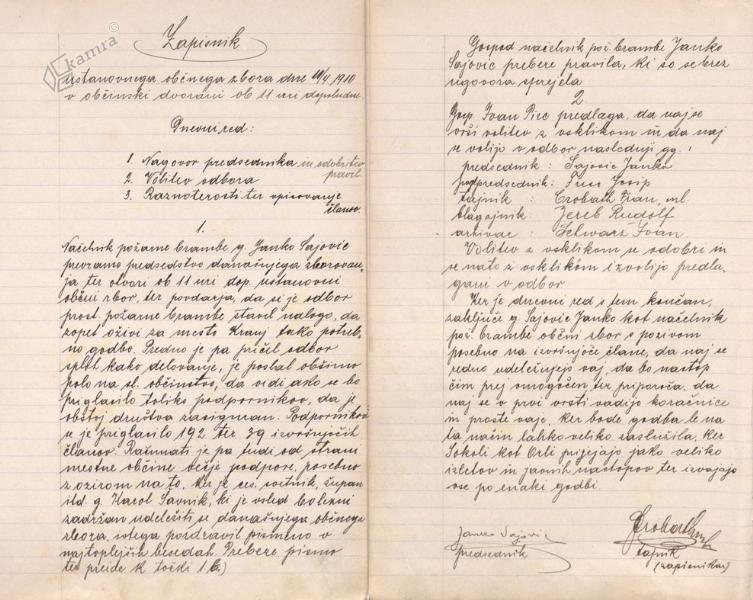 kamra
Zapisnik
ustanovnega občnega zbora dne 10/4 1910
v občinski dvorani ob 11 uri dopoludne
Dnevni red:
1. Nagovor predsednika in odobritev pravil
2. Volitev odbora
3. Raznoterosti ter vpisovanje članov.
1.
Načelnik požarne brambe g. Janko Sajovic
prevzame predsedstvo današnjega zborovan-
ja ter otvori ob 11 uri dop. ustanovni
občni zbor, ter povdarja, da si je odbor
prost. požarne brambe stavil nalogo, da
zopet oživi za mesto Kranj tako potreb-
no godbo. Predno je pa pričel odbor
sploh kako delovanje, je poslal obširno
polo na sl. občinstvo, da vidi ako se bo
priglasilo toliko podpornikov, da je
obstoj društva zasigman. Podpornikov
se je priglasilo 192 ter 39 izvršujočih
članov. Računati je pa tudi od strani
mestne občine večje podpore, posebno
z ozirom na to, ker je ces. svetnik, župan
itd. g. Karol Šavnik, ki je vsled bolezni
zadržan udeležiti se današnjega občnega
zbora, istega pozdravil pismeno v
najtoplejših besedah. Prebere pismo
ter preide k točki 1 b.)
Gospod načelnik pož. brambe Janko
Sajovic prebere pravila, ki so se brez
ugovora sprejela
2
Gosp. Ivan Pirc predlaga, da naj se
vrši volitev z vsklikom in da naj
se volijo v odbor naslednji gg.:
predsednik: Sajovic Janko
podpredsednik: Fuso Josip
tajnik: Crobath Fran, ml.
blagajnik: Jereb Rudolf
arhivar: Schwarz Ivan.
Volitev z vsklikom se odobri in
se nato z vsklikom izvolijo predla-
gani v odbor
Ker je dnevni red s tem končan,
zaključi g. Sajovic Janko kot načelnik
pož. brambe občni zbor s pozivom
posebno na izvršujoče člane, da naj se
redno udeležujejo vaj, da bo nastop
čim prej omogočen ter priporoča, da
naj se v prvi vrsti vadijo koračnice
in proste vaje, ker bode godba le na
ta način lahko veliko zaslužila, ker
Sokoli kot Orli prirejajo jako veliko
izletov in javnih nastopov ter izvajajo
vse po enaki godbi.
Janko Sajovic
predsednik
Crobath
tajnik
(zapisnikar)